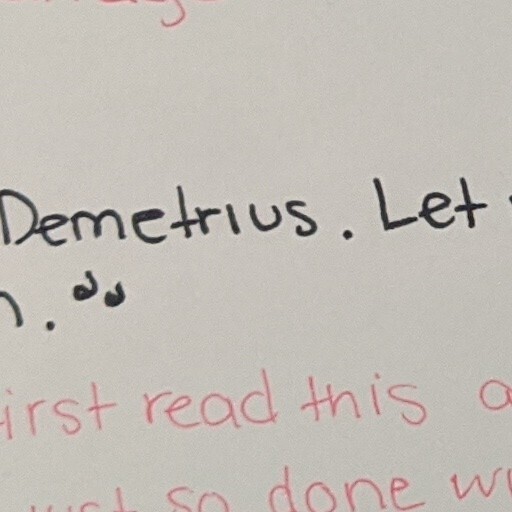 Demetrius. Let
."
irst read this a
so done